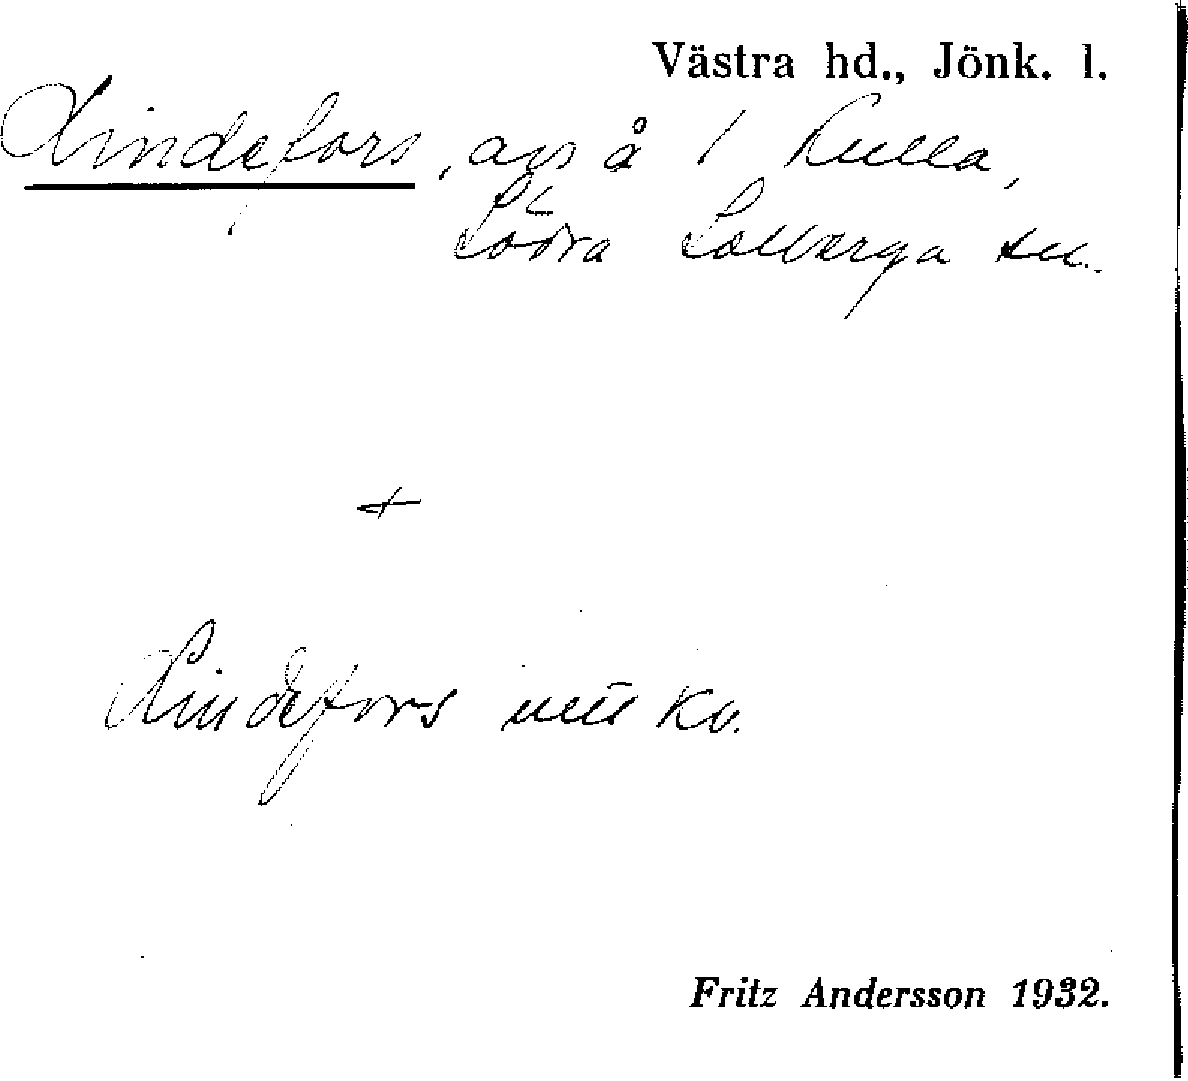 Västra hd., Jönk. l.
Lindefors, avs å 1 Kulla,
Södra Solberga sn.
+
Lindefors
Fritz Andersson 1932.